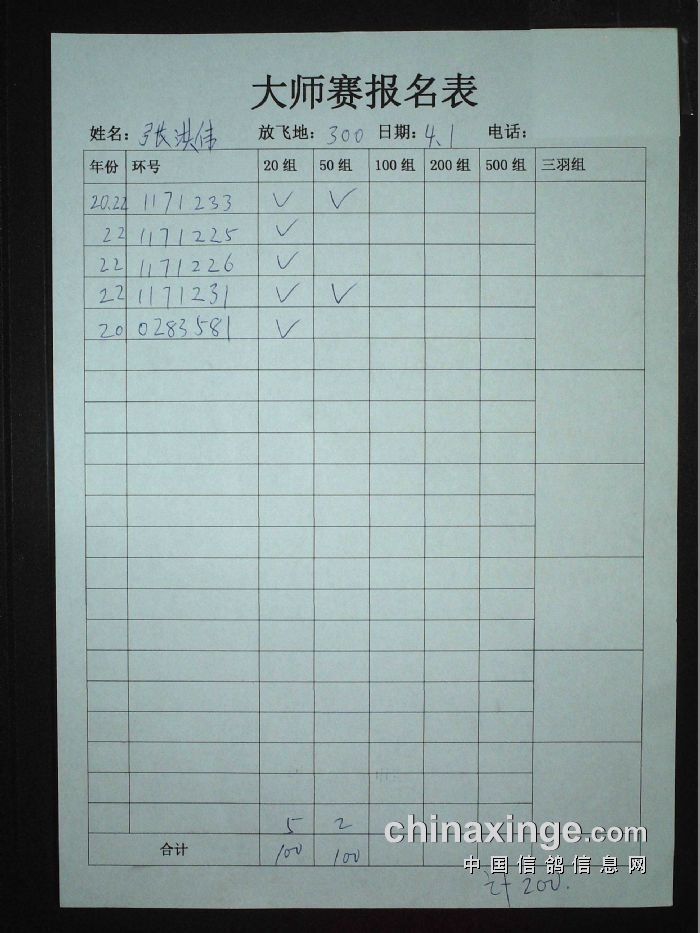 大师赛报名表
姓名：张洪伟 放飞地：300 日期：4.1 电话：
年份 环号 20组 50组 100组 200组 500组 三羽组
20.22 1171233 ✓ ✓
22 1171225 ✓
22 1171226 ✓
22 1171231 ✓ ✓
20 0283581 ✓
5 2
合计 100 100
chinaxinge.com
中国信鸽信息网
计 200.